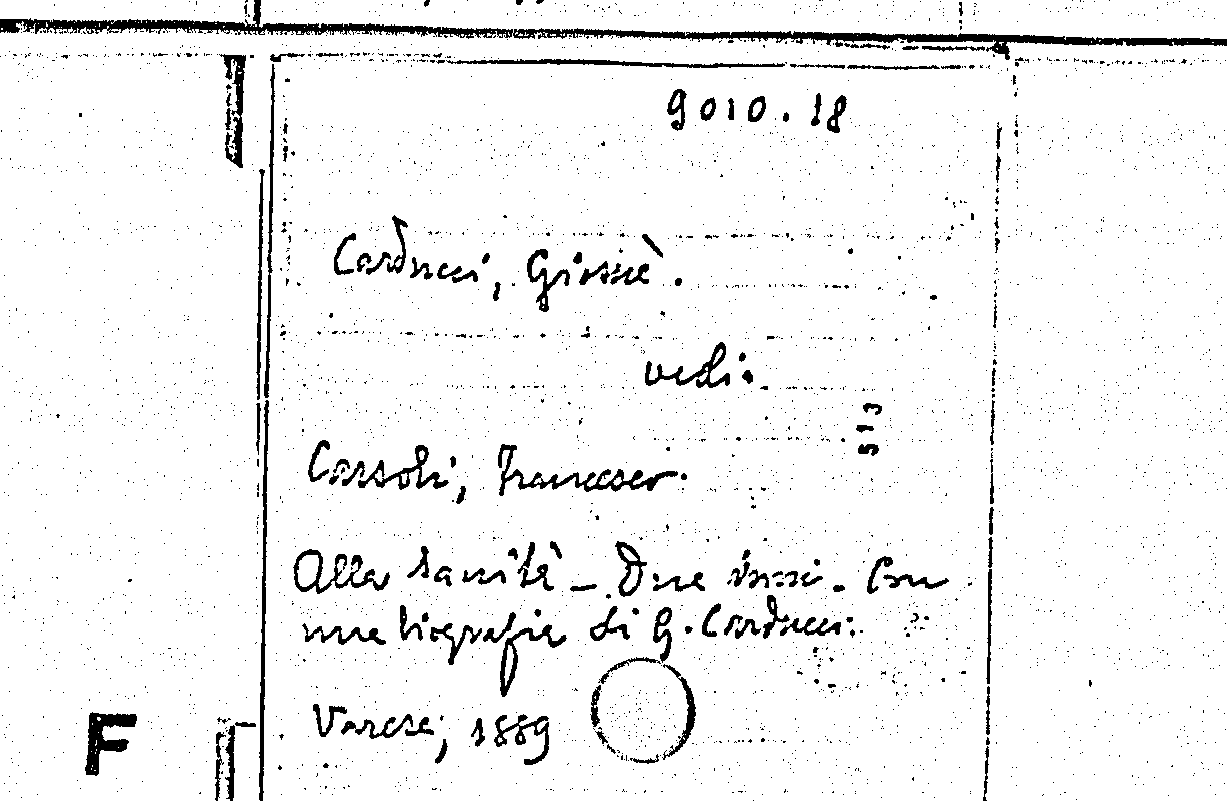 9010.18
Carducci, Giosuè.
vedi:
513
Cassoli, Francesco.
Alla sanità - Due inni. Con
una biografia di G. Carducci.
Varese, 1889
F